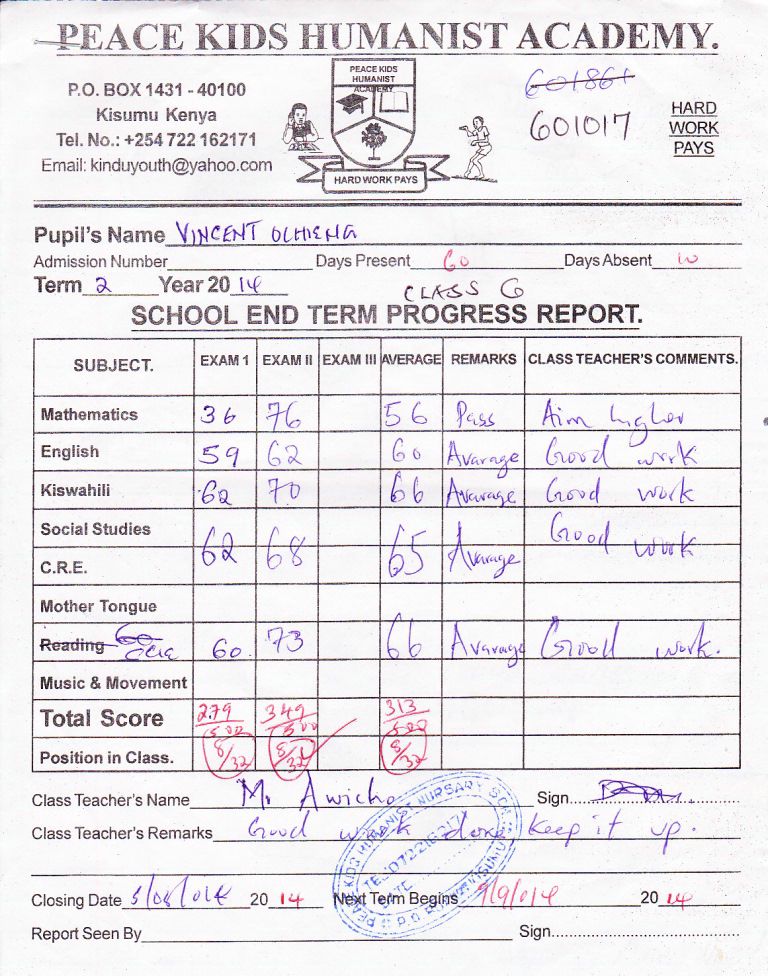 PEACE KIDS HUMANIST ACADEMY.
P.O. BOX 1431 - 40100
Kisumu Kenya
Tel. No.: +254 722 162171
Email: kinduyouth@yahoo.com
PEACE KIDS
HUMANIST
ACADEMY
HARD WORK PAYS
601861
601017
HARD
WORK
PAYS
Pupil's Name VINCENT OCHIENG
Admission Number Days Present 60 Days Absent 10
Term 2 Year 2014 CLASS 6
SCHOOL END TERM PROGRESS REPORT.
SUBJECT. EXAM 1 EXAM II EXAM III AVERAGE REMARKS CLASS TEACHER'S COMMENTS.
Mathematics 36 76 56 Pass Aim higher
English 59 62 60 Avarage Good work
Kiswahili 62 70 66 Avarage Good work
Social Studies
62 68 65 Avarage Good work
C.R.E.
Mother Tongue
Reading 60 73 66 Avarage Good work.
Music & Movement
Total Score 279/500 349/500 313/500
Position in Class. 8/32 8/32 8/32
Class Teacher's Name M. Awicho Sign
Class Teacher's Remarks Good work done, keep it up.
PEACE KIDS HUMANIST NURSARY
DATE
Closing Date 5/08/014 2014 Next Term Begins 9/9/014 2014
Report Seen By Sign